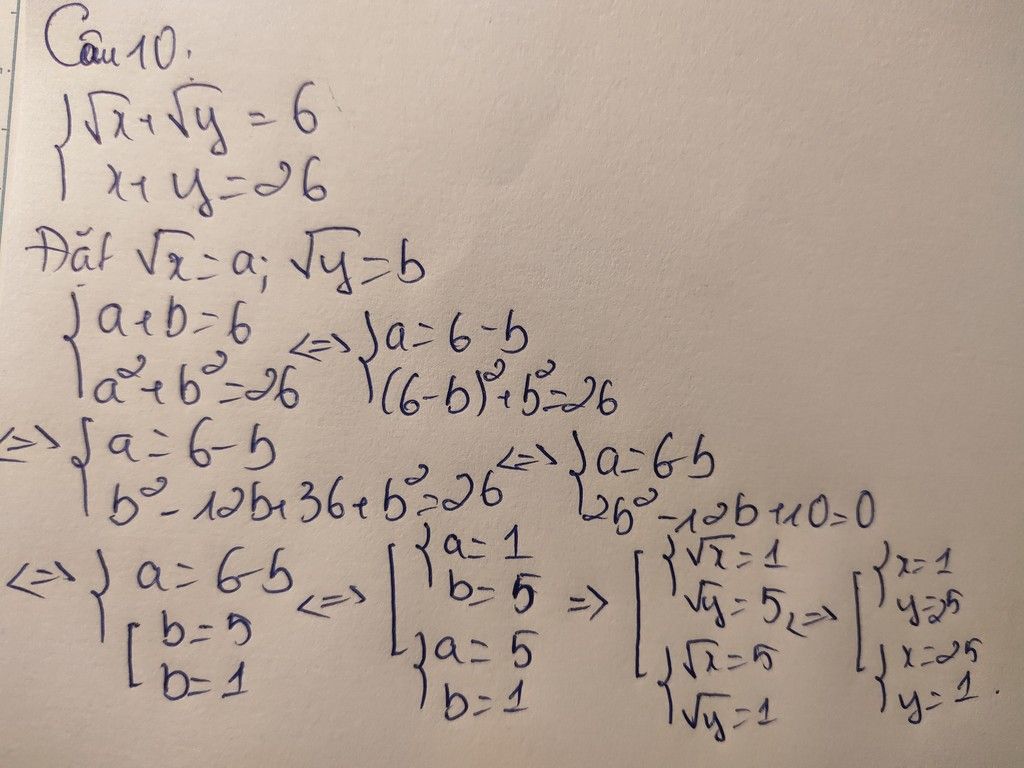 Câu 10.
{ √x + √y = 6
x + y = 26
Đặt √x = a; √y = b
{ a + b = 6
a² + b² = 26
<=> { a = 6 - b
(6 - b)² + b² = 26
<=> { a = 6 - b
b² - 12b + 36 + b² = 26
<=> { a = 6 - b
2b² - 12b + 10 = 0
<=> { a = 6 - b
[ b = 5
b = 1
<=> [ { a = 1
b = 5
{ a = 5
b = 1
=> [ { √x = 1
√y = 5
{ √x = 5
√y = 1
<=> [ { x = 1
y = 25
{ x = 25
y = 1.